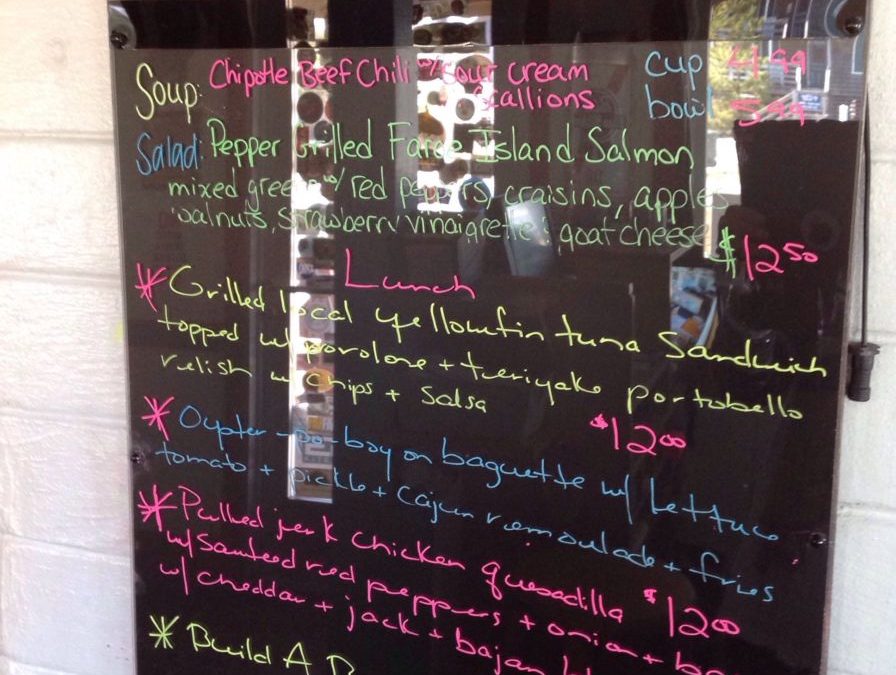 Soup: Chipotle Beef Chili w/ sour cream cup 4.99
& scallions bowl 5.99
Salad: Pepper Grilled Faroe Island Salmon
mixed greens w/ red peppers, craisins, apples
walnuts, strawberry vinaigrette & goat cheese
$12.50
Lunch
* Grilled local yellowfin tuna Sandwich
topped w/ provolone + teriyake portobello
relish w/ chips + Salsa
$12.00
* Oyster-po-boy on baguette w/ Lettuce
tomato + pickle + cajun remoulade + fries
* Pulled jerk chicken quesadilla $12.00
w/ sauteed red peppers + onion +
w/ cheddar + jack + bajan
* Build A